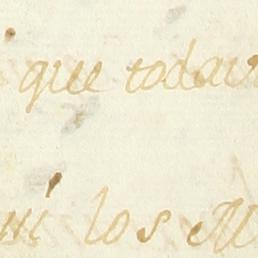 que todav
mi los M